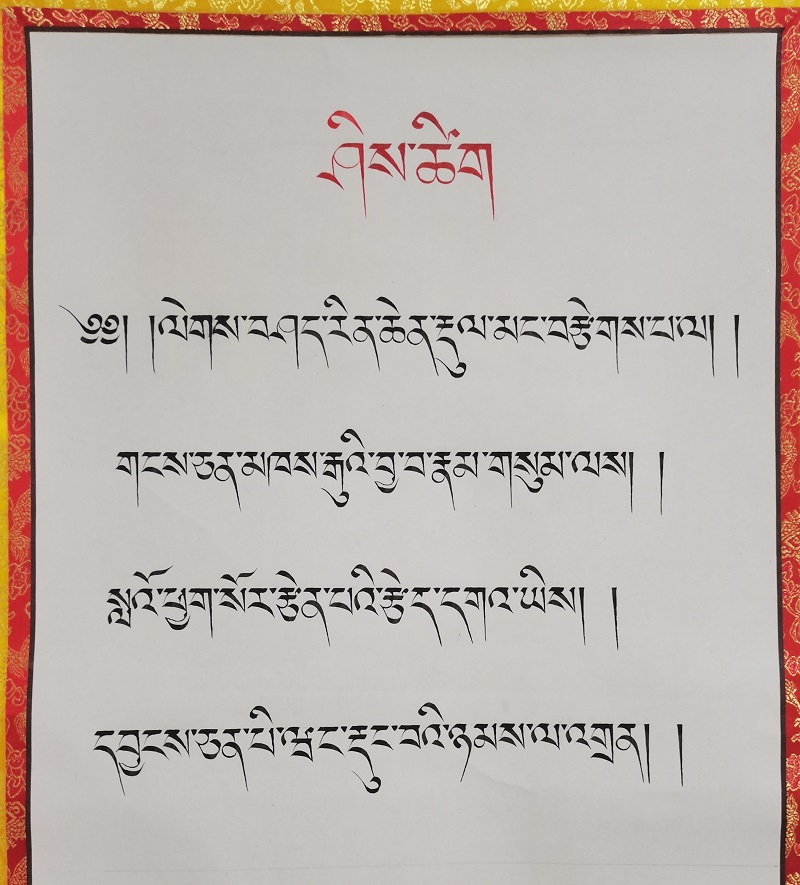 ཤིས་ཚིག
༄༅། །ལེགས་བཤད་རིན་ཆེན་རྡུལ་མང་བརྩེགས་པ་ལ། །
གངས་ཅན་མཁས་རྒུའི་བྱ་བ་རྣམ་གསུམ་ལས། །
སླའོ་ཕྱག་སོར་རྩེན་པའི་རྩེད་དགའ་ཡིས། །
དབྱངས་ཅན་པི་ཝང་རྡུང་བའི་ཉམས་ལ་འགྲན། །